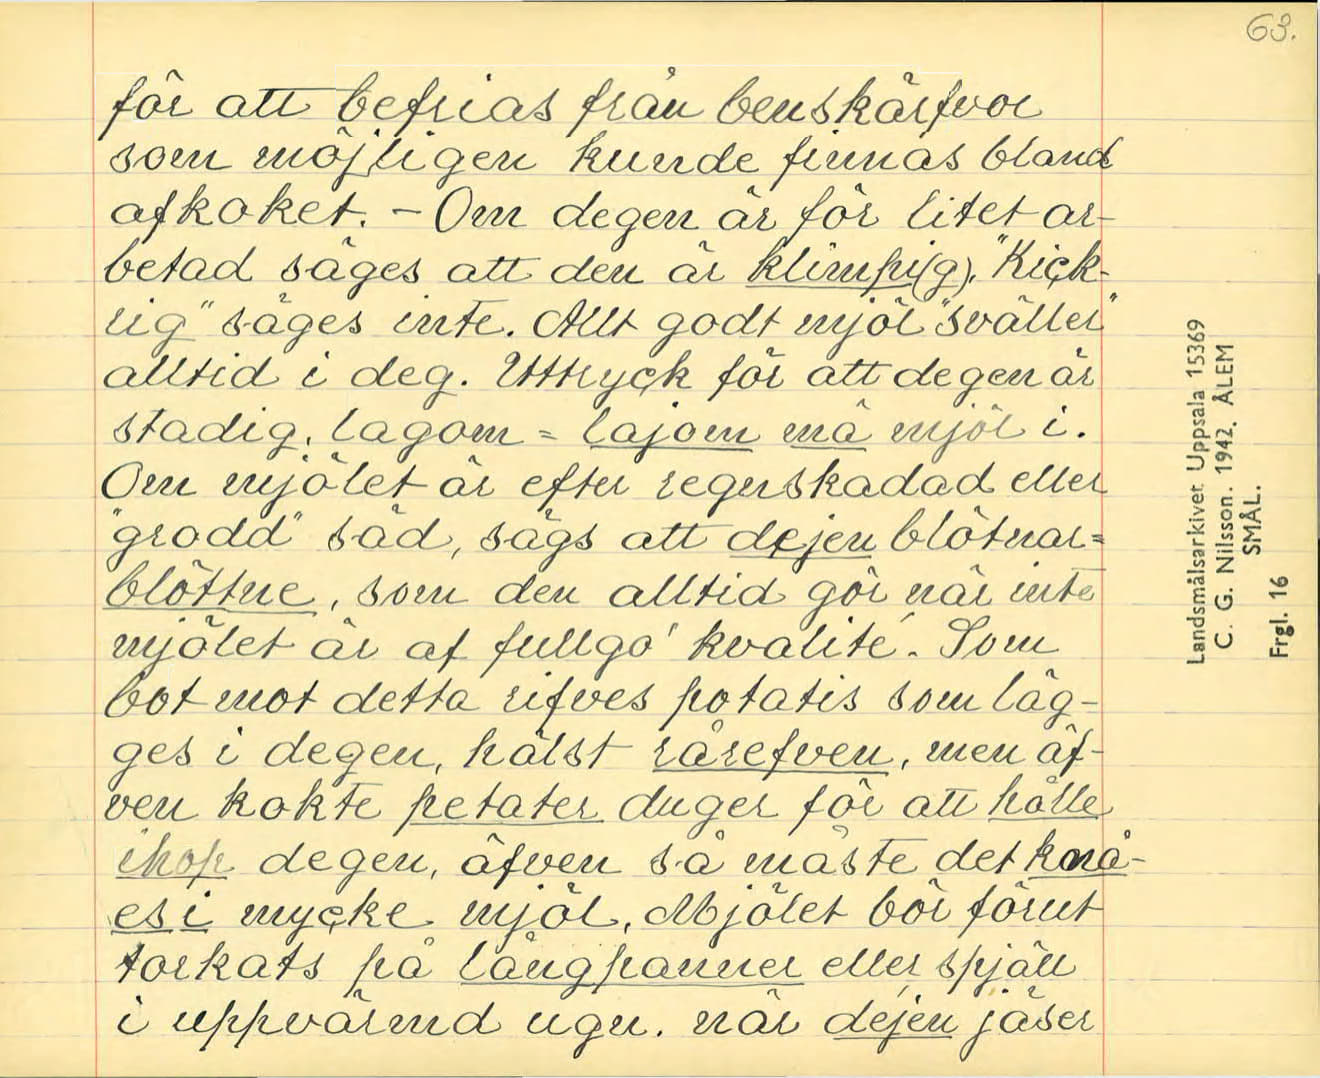 63.
för att befrias från benskärfvor
som möjligen kunde finnas bland
afkoket. – Om degen är för litet ar-
betad säges att den är klimpi(g). "Kick-
rig" säges inte. Allt godt mjöl "sväller"
alltid i deg. Uttryck för att degen är
stadig, lagom = lajom må mjöl i.
Om mjölet är efter regnskadad eller
"grodd" säd, sägs att dejen blötnar =
blöttne, som den alltid gör när inte
mjölet är af fullgo' kvalité. Som
bot mot detta rifves potatis som läg-
ges i degen, hälst rårefven, men äf-
ven kokte petater duger för att hålle
ihop degen, äfven så måste det knå-
es i mycke mjöl. Mjölet bör förut
torkats på långpanner eller spjäll
i uppvärmd ugn. när dejen jäser
Landsmålsarkivet Uppsala 15369
C. G. Nilsson. 1942. ÅLEM
SMÅL.
Frgl. 16